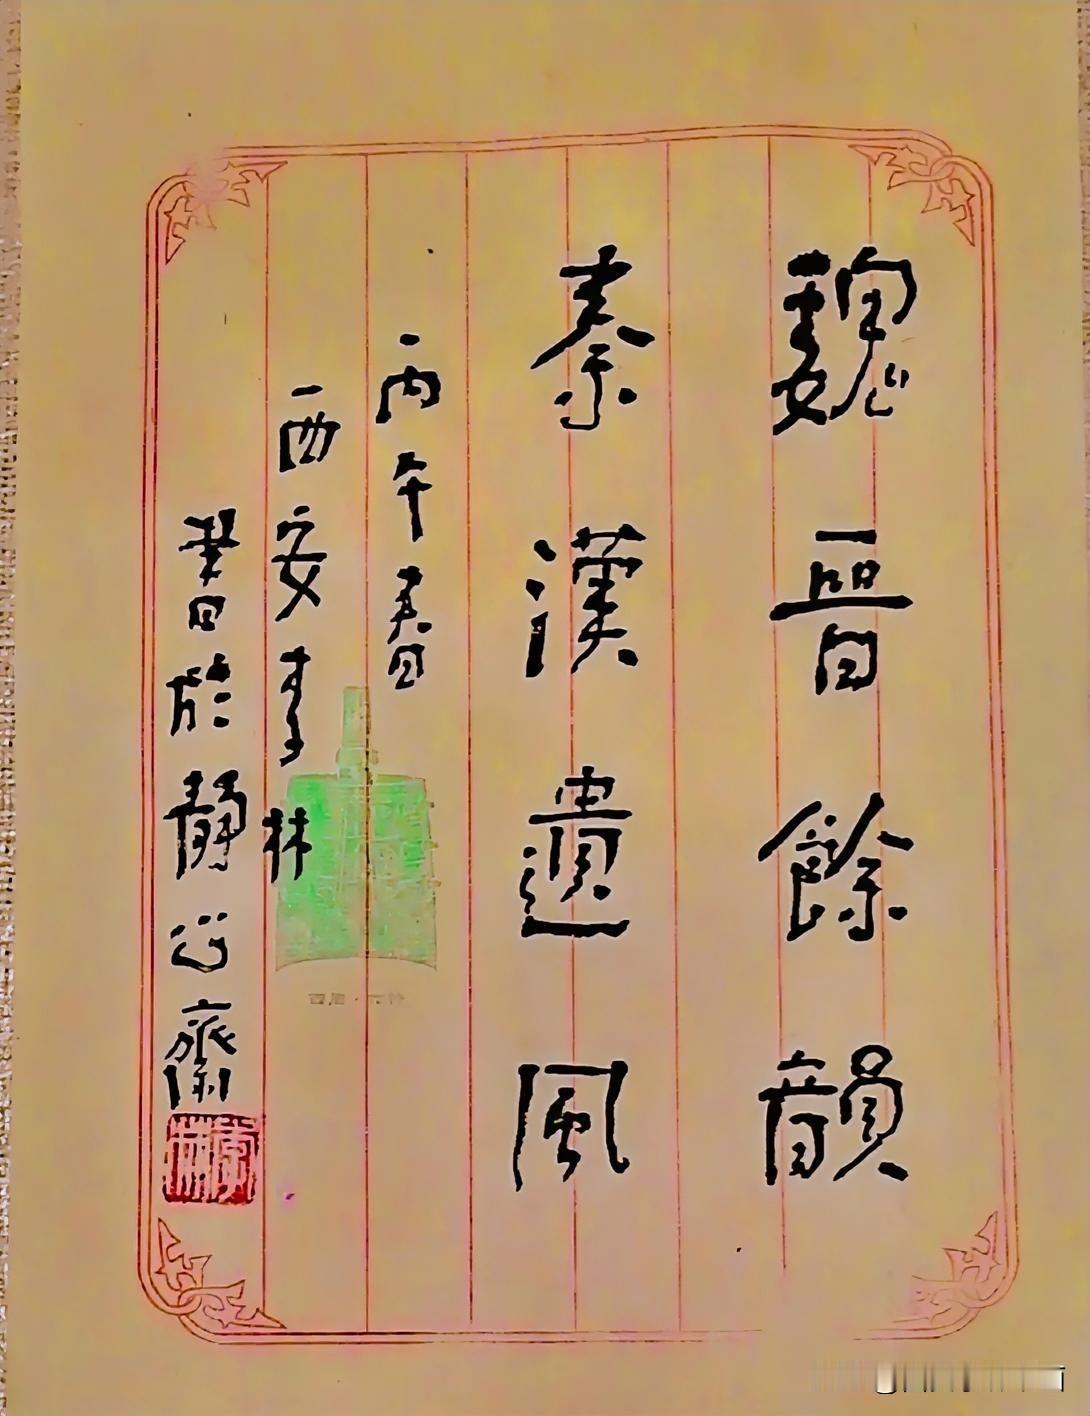 魏晉餘韻
秦漢遺風
丙午春
西安李林
書於靜心齋
李林